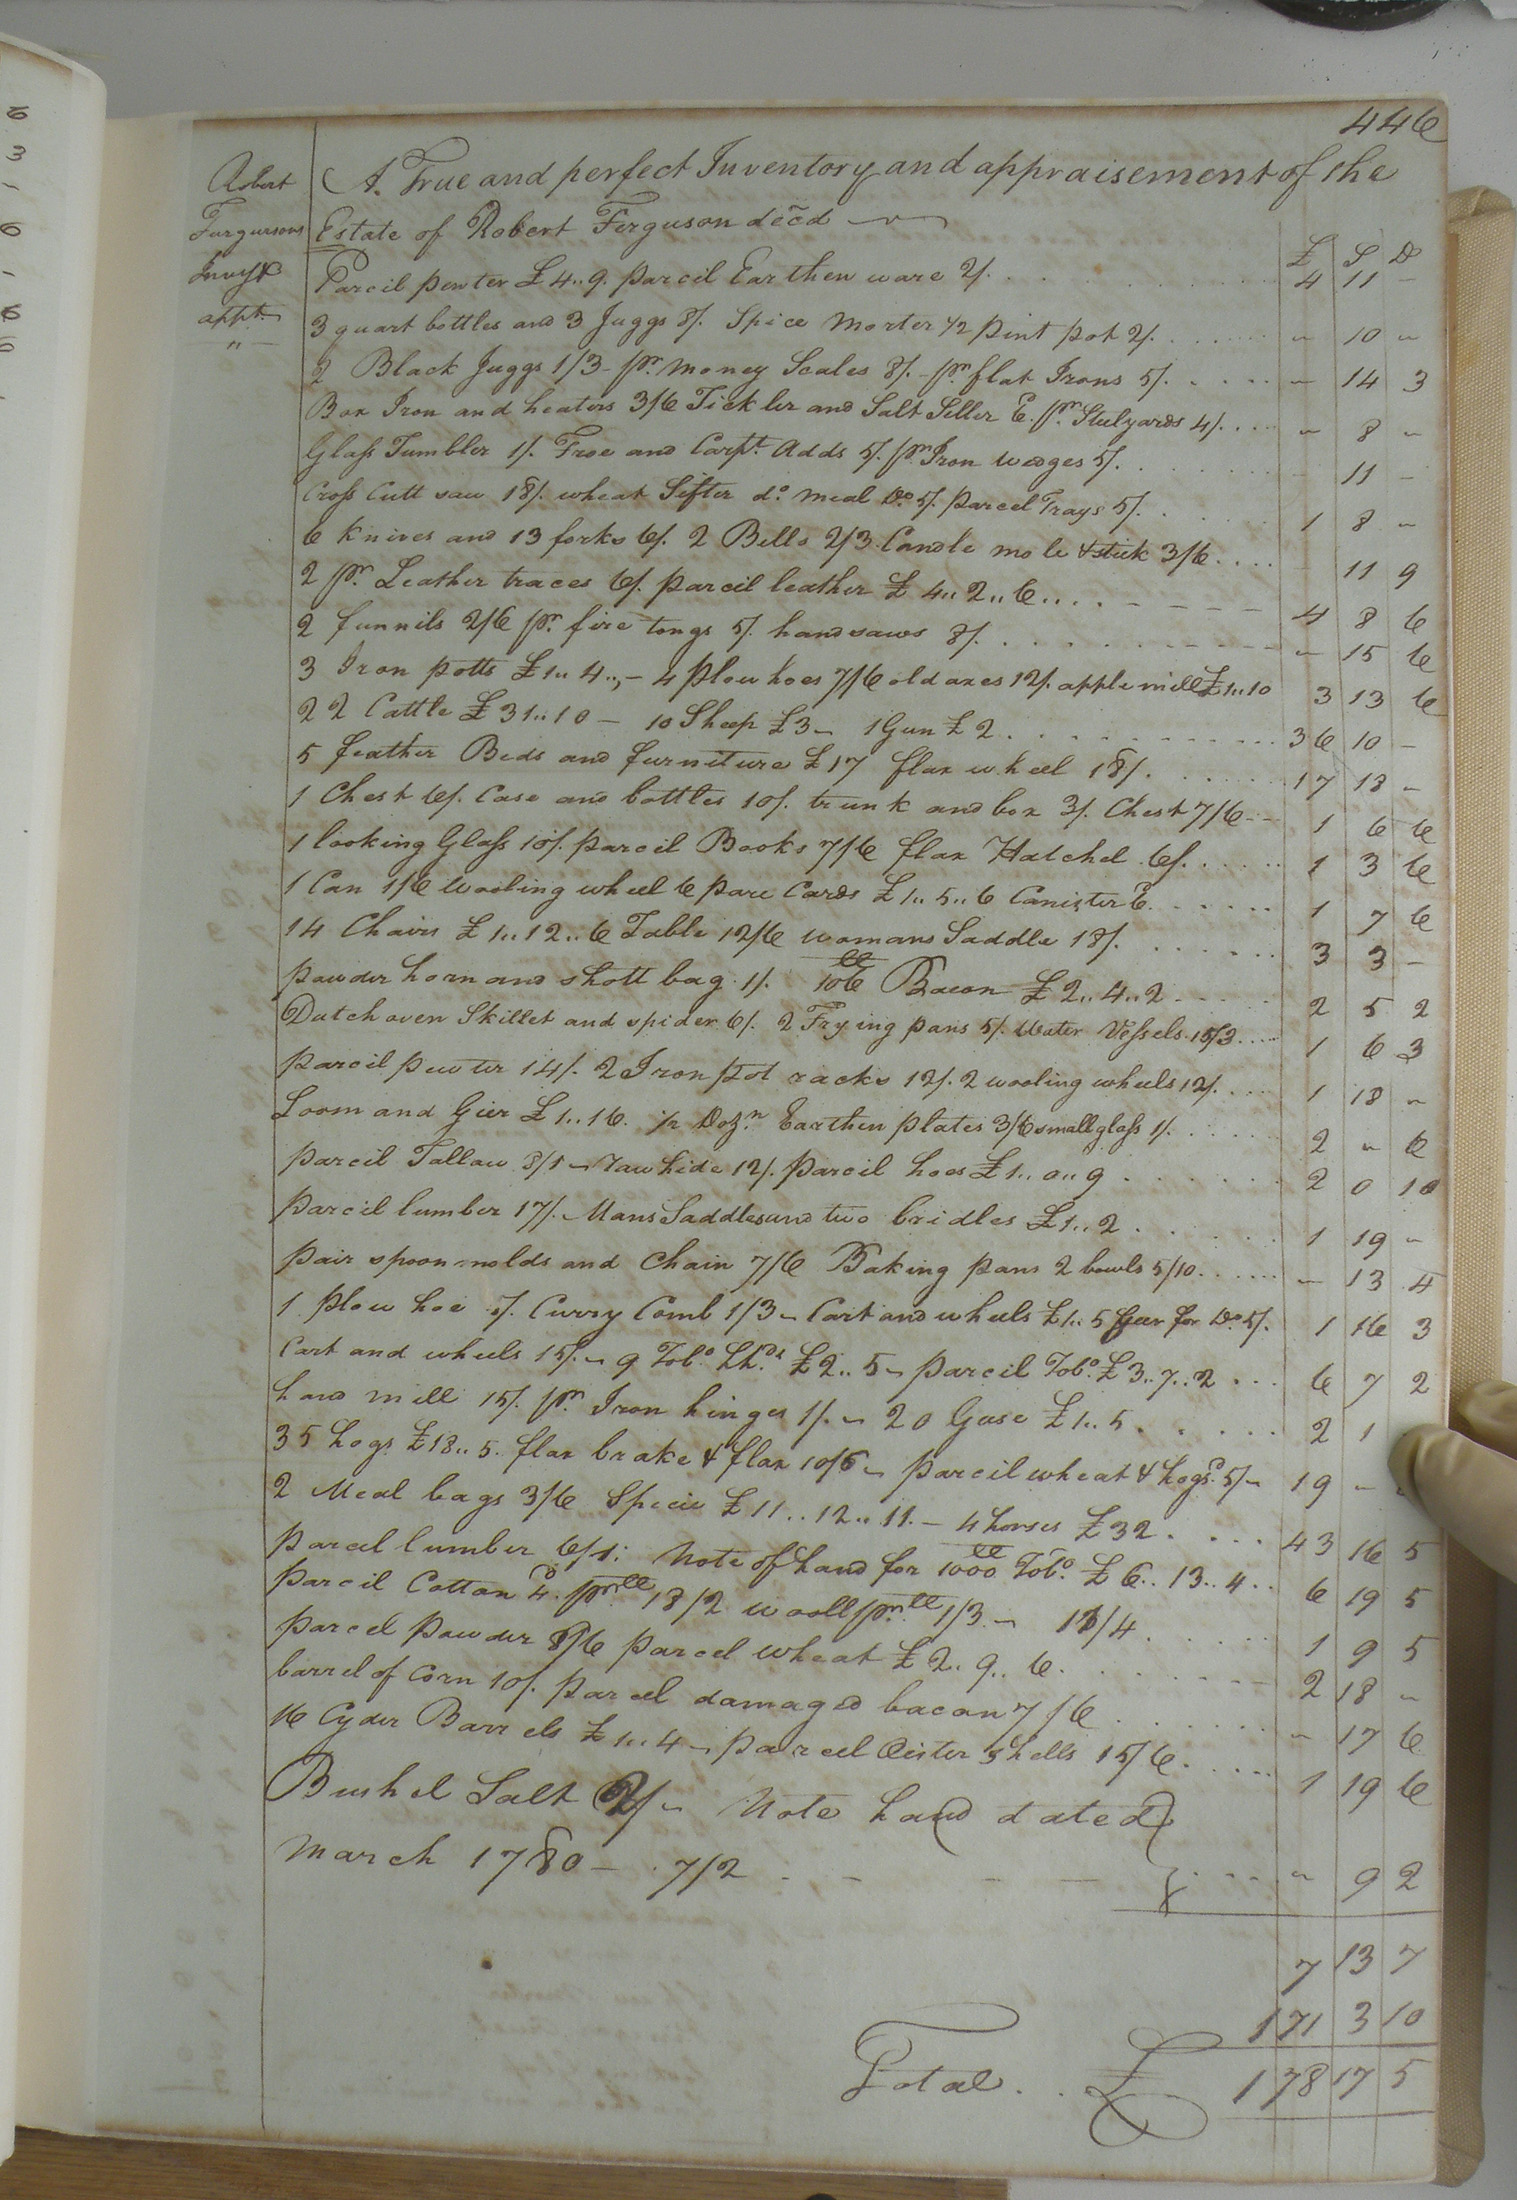 446
Robert
Furgusons
Invy &
appt.
"
A True and perfect Inventory and appraisement of the
Estate of Robert Ferguson decd
£ S D
Parcil pewter £4..9. parcil Earthen ware 2/. 4 11 -
3 quart bottles and 3 Juggs 8/. Spice Morter 1/2 pint pot 2/. " 10 "
2 Black Juggs 1/3 - pr. Money Scales 8/. - pr. flat Irons 5/. - 14 3
Box Iron and heaters 3/6 Tickler and Salt Seller 6. pr. Stulyards 4/. " 8 "
Glass Tumbler 1/. Froe and Carpt. Adds 5/. pr. Iron wedges 5/. - 11 -
Cross Cutt saw 18/. wheat Sifter do. meal Do. 5/. parcel Trays 5/. 1 8 "
6 Knives and 13 forks 6/. 2 Bells 2/3. Candle mole & stick 3/6 11 9
2 pr. Leather traces 6/. parcil leather £4..2..6 4 8 6
2 funnils 2/6 pr. fire tongs 5/. handsaws 8/. " 15 6
3 Iron potts £1..4..- 4 plow hoes 7/6 old axes 12/. apple mill £1..10 3 13 6
22 Cattle £31..10 - 10 Sheep £3 - 1 Gun £2 36 10 -
5 feather Beds and furniture £17 flax wheel 18/. 17 18 -
1 Chest 6/. Case and bottles 10/. trunk and box 3/. Chest 7/6 1 6 6
1 looking Glass 10/. parcil Books 7/6 flax Hatchel 6/. 1 3 6
1 Can 1/6 wooling wheel 6 pare Cards £1..5..6 Canister 6 1 7 6
14 Chairs £1..12..6 Table 12/6 womans Saddle 18/. 3 3 -
powder horn and shott bag 1/. 106 ll Bacon £2..4..2 2 5 2
Dutch oven Skillet and spider 6/. 2 Frying pans 5/. Water Vessels 15/3 1 6 3
parcil pewter 14/. 2 Iron pot racks 12/. 2 wooling wheels 12/. 1 18 "
Loom and Gier £1..16. 1/2 Dozn. Earthen plates 3/6 small glass 1/. 2 " 6
parcil Tallow 8/1 - raw hide 12/. parcil hoes £1..0..9 2 0 10
parcil lumber 17/. - Mans Saddles and two bridles £1..2 1 19 -
pair spoon molds and Chain 7/6 Baking pans 2 bowls 5/10 - 13 4
1 plow hoe 5/. Curry Comb 1/3 - Cart and wheels £1..5 Geer for Do. 5/. 1 16 3
Cart and wheels 15/. - 9 Tobo. hhds. £2..5 - parcil Tobo. £3..7..2 6 7 2
hand mill 15/. pr. Iron hinges 1/. - 20 Geese £1..5 2 1
35 hogs £18..5. flax brake & flax 10/6 - parcil wheat & hogsd. 5/- 19 -
2 Meal bags 3/6 Specie £11..12..11. - 4 horses £32 43 16 5
parcel lumber 6/1: Note of hand for 1000 ll Tobo. £6..13..4 6 19 5
parcil Cotton 4d. pr. ll 13/2 wooll pr. ll 1/3 - 18/4 1 9 5
parcel powder 8/6 parcel wheat £2..9..6 2 18 -
barrel of corn 10/. parcel damaged bacon 7/6 - 17 6
16 Cyder Barrels £1..4 - parcel Oister shells 15/6 1 19 6
Bushel Salt 2/- Note hand dated
March 1780 - 7/2 - 9 2
7 13 7
171 3 10
Total £ 178 17 5